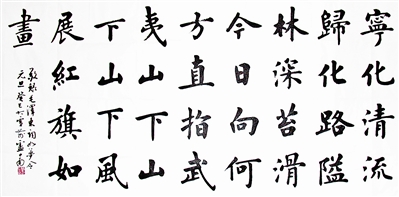 寧化清流
歸化路隘
林深苔滑
今日向何
方直指武
夷山下山
下山下風
展紅旗如
畫
敬録毛澤東詞如夢令
元旦癸巳